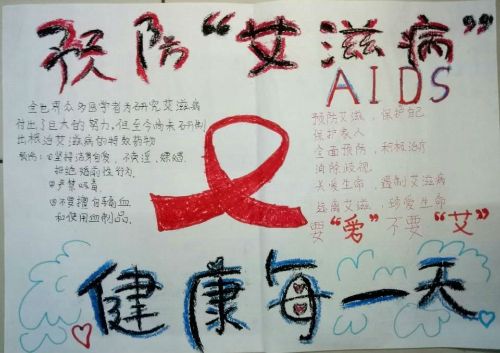 预防“艾滋病”
AIDS
全世界众多医学者为研究艾滋病
付出了巨大的努力,但至今尚未研制
出根治艾滋病的特效药物
预防:①坚持洁身自爱,不卖淫、嫖娼
拒绝婚前性行为
②严禁吸毒
③不要擅自输血
和使用血制品.
预防艾滋,保护自己
保护家人
全面预防,积极治疗
消除歧视
关爱生命,遏制艾滋病
远离艾滋,珍爱生命
要“爱”不要“艾”
健康每一天